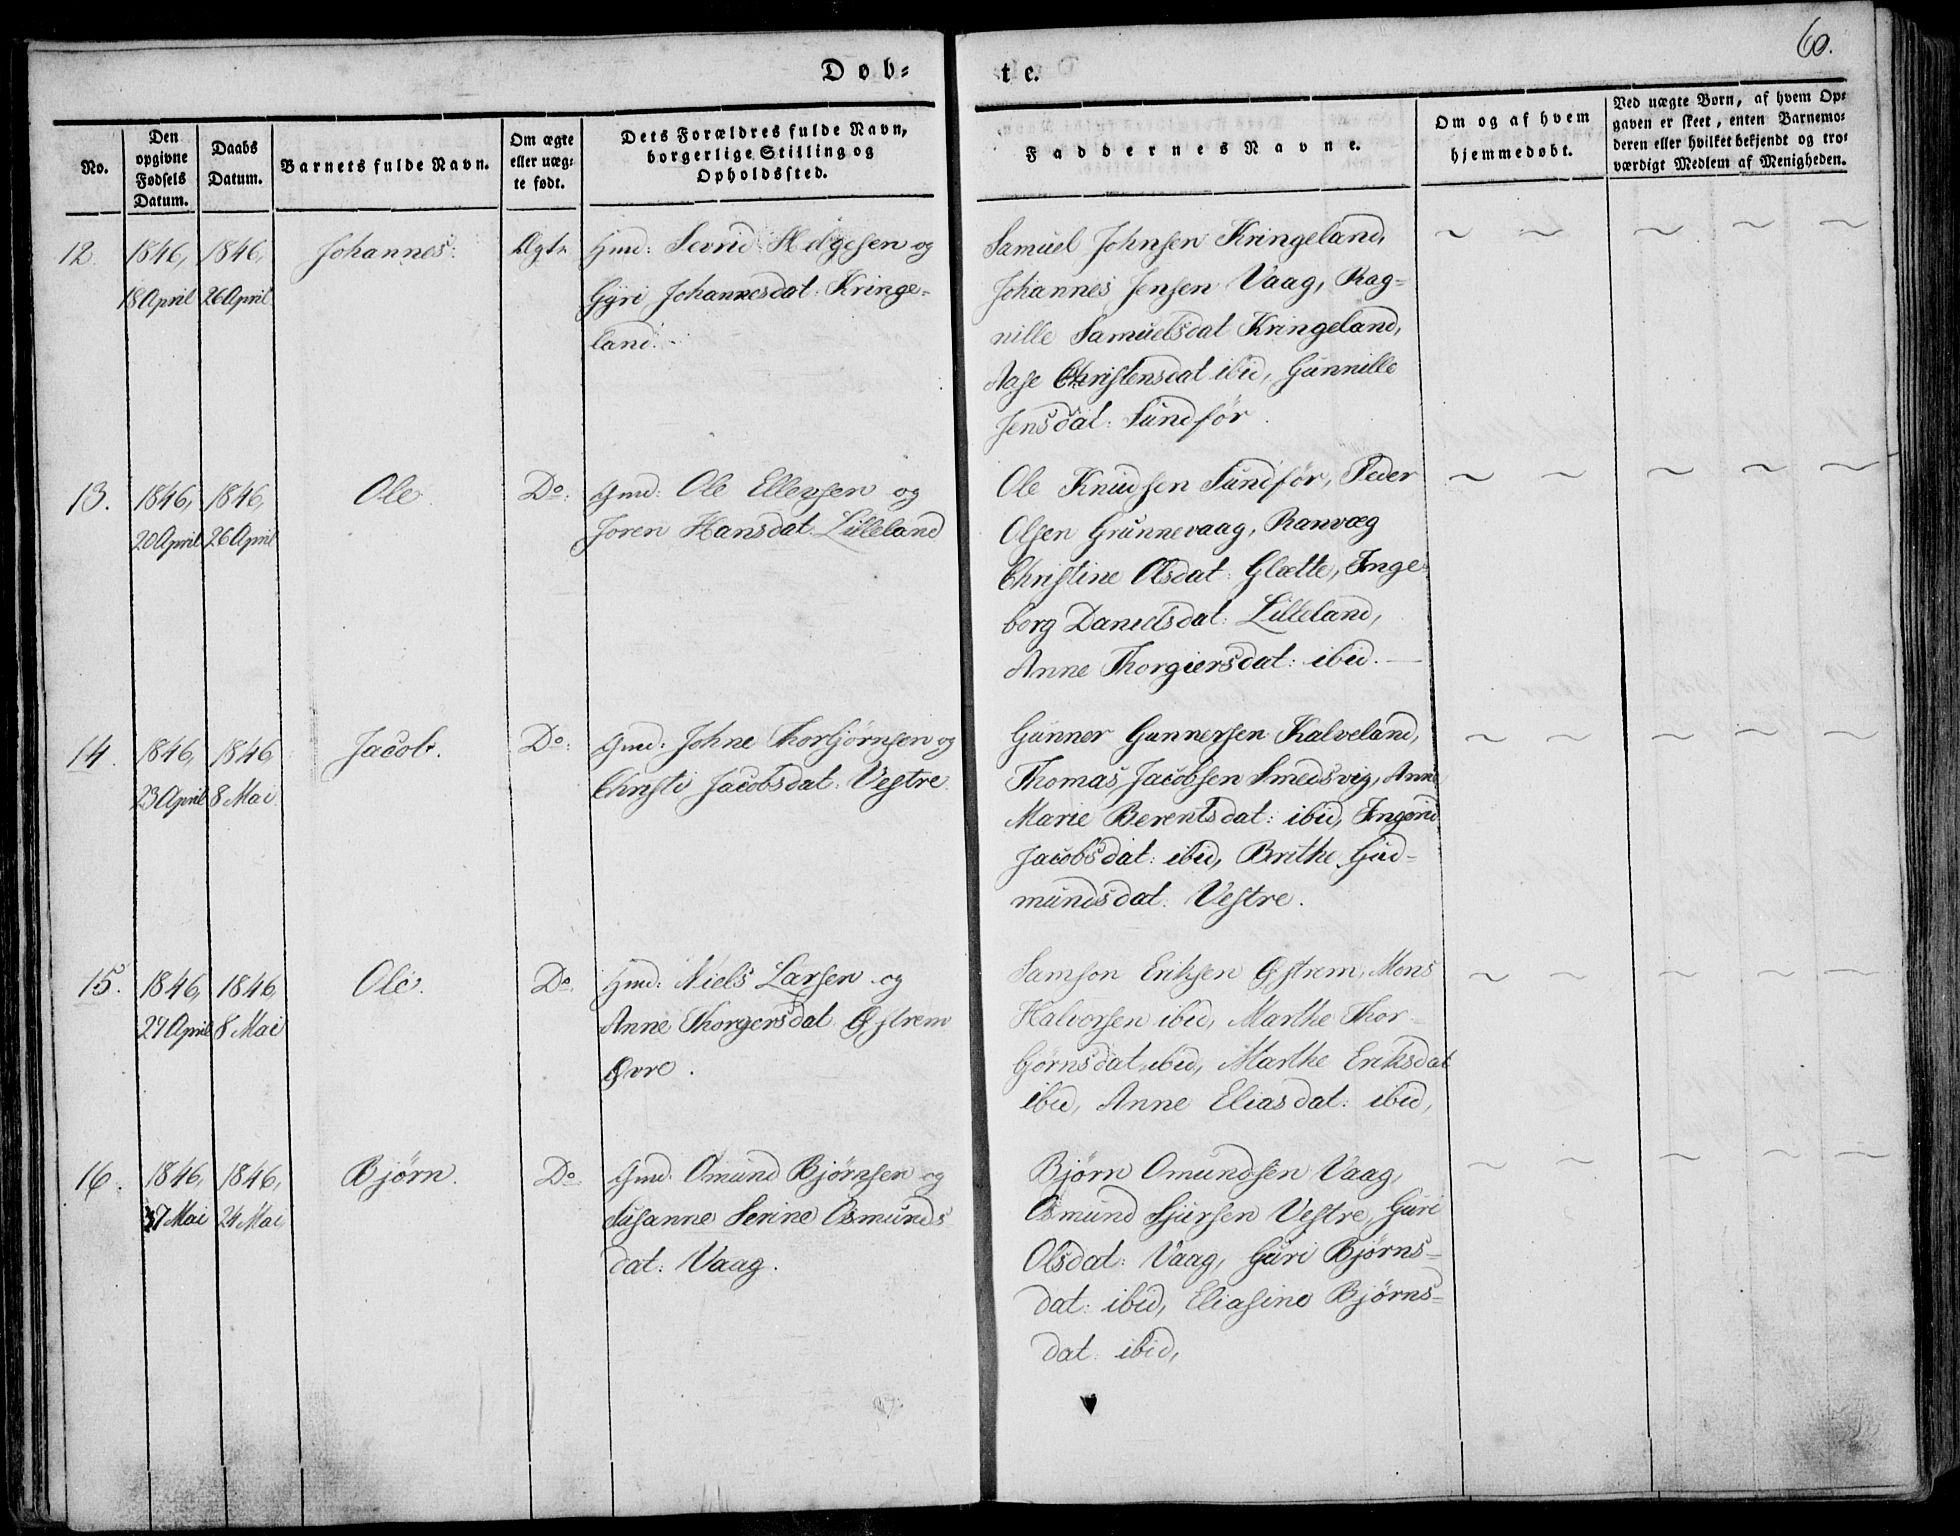 60.
Døb-
te.
No.
Den
opgivne
Fødsels
Datum.
Daabs
Datum.
Barnets fulde Navn.
Om ægte
eller uæg-
te født.
Dets Forældres fulde Navn,
borgerlige Stilling og
Opholdssted.
Faddernes Navne.
Om og af hvem
hjemmedøbt.
Ved uægte Børn, af hvem Op-
gaven er skeet, enten Barnemo-
deren eller hvilket bekjendt og tro-
værdigt Medlem af Menigheden.
12.
1846,
18 April
1846,
26 April
Johannes.
Ægte
Gmd: Sevrid Helgesen og
Gyri Johannesdat: Kringe-
land.
Samuel Johnsen Kringeland,
Johannes Jensen Vaag, Rag-
nille Samuelsdat Kringeland,
Aase Christensdat ibid, Gunnille
Jensdat: Sundfør.
13.
1846,
20 April
1846,
26 April
Ole
Do:
Gmd: Ole Ellevsen og
Joren Hansdat: Lilleland
Ole Knudsen Sundfør, Peder
Olsen Grunnevaag, Ranvæg
Christine Olsdat: Glætte, Inge-
borg Danielsdat: Lilleland,
Anne Thorgiersdat: ibid.
14.
1846,
23 April
1846,
8 Mai
Jacob.
Do:
Gmd: Johne Thorbjørnsen og
Christi Jacobsdat: Vestre.
Gunner Gunnersen Kalveland,
Thomas Jacobsen Smedsvig, Anne
Marie Berentsdat: ibid, Ingerid
Jacobsdat: ibid, Brithe Gud-
mundsdat: Vestre.
15.
1846,
24 April
1846,
8 Mai
Ole.
Do.
Gmd: Niels Larsen og
Anne Thorgersdat Østrem
Øvre.
Samson Eriksen Østrem, Mons
Halvorsen ibid, Marthe Thor-
bjørnsdat, ibid, Marthe Eriksdat
ibid, Anne Eliasdat: ibid,
16.
1846,
7 Mai
1846,
24 Mai
Bjørn.
Do.
Gmd: Omund Bjørnsen og
Susanne Serine Osmunds
dat: Vaag.
Bjørn Omundsen Vaag,
Osmund Sjursen Vestre, Guri
Olsdat: Vaag, Guri Bjørns-
dat: ibid, Eliasine Bjørns-
dat: ibid,